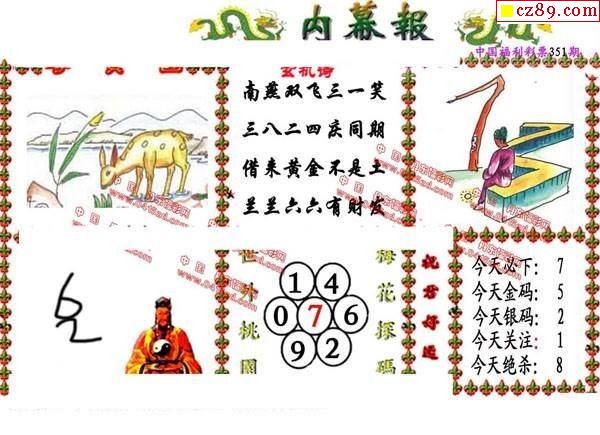 cz89.com
内幕報
中国福利彩票351期
玄机诗
南燕双飞三一笑
三八二四庆同期
借来黄金不是土
兰兰六六有财发
世外桃園
1 4
0 7 6
9 2
梅花探碼
祝君好運
今天必下: 7
今天金码: 5
今天银码: 2
今天关注: 1
今天绝杀: 8